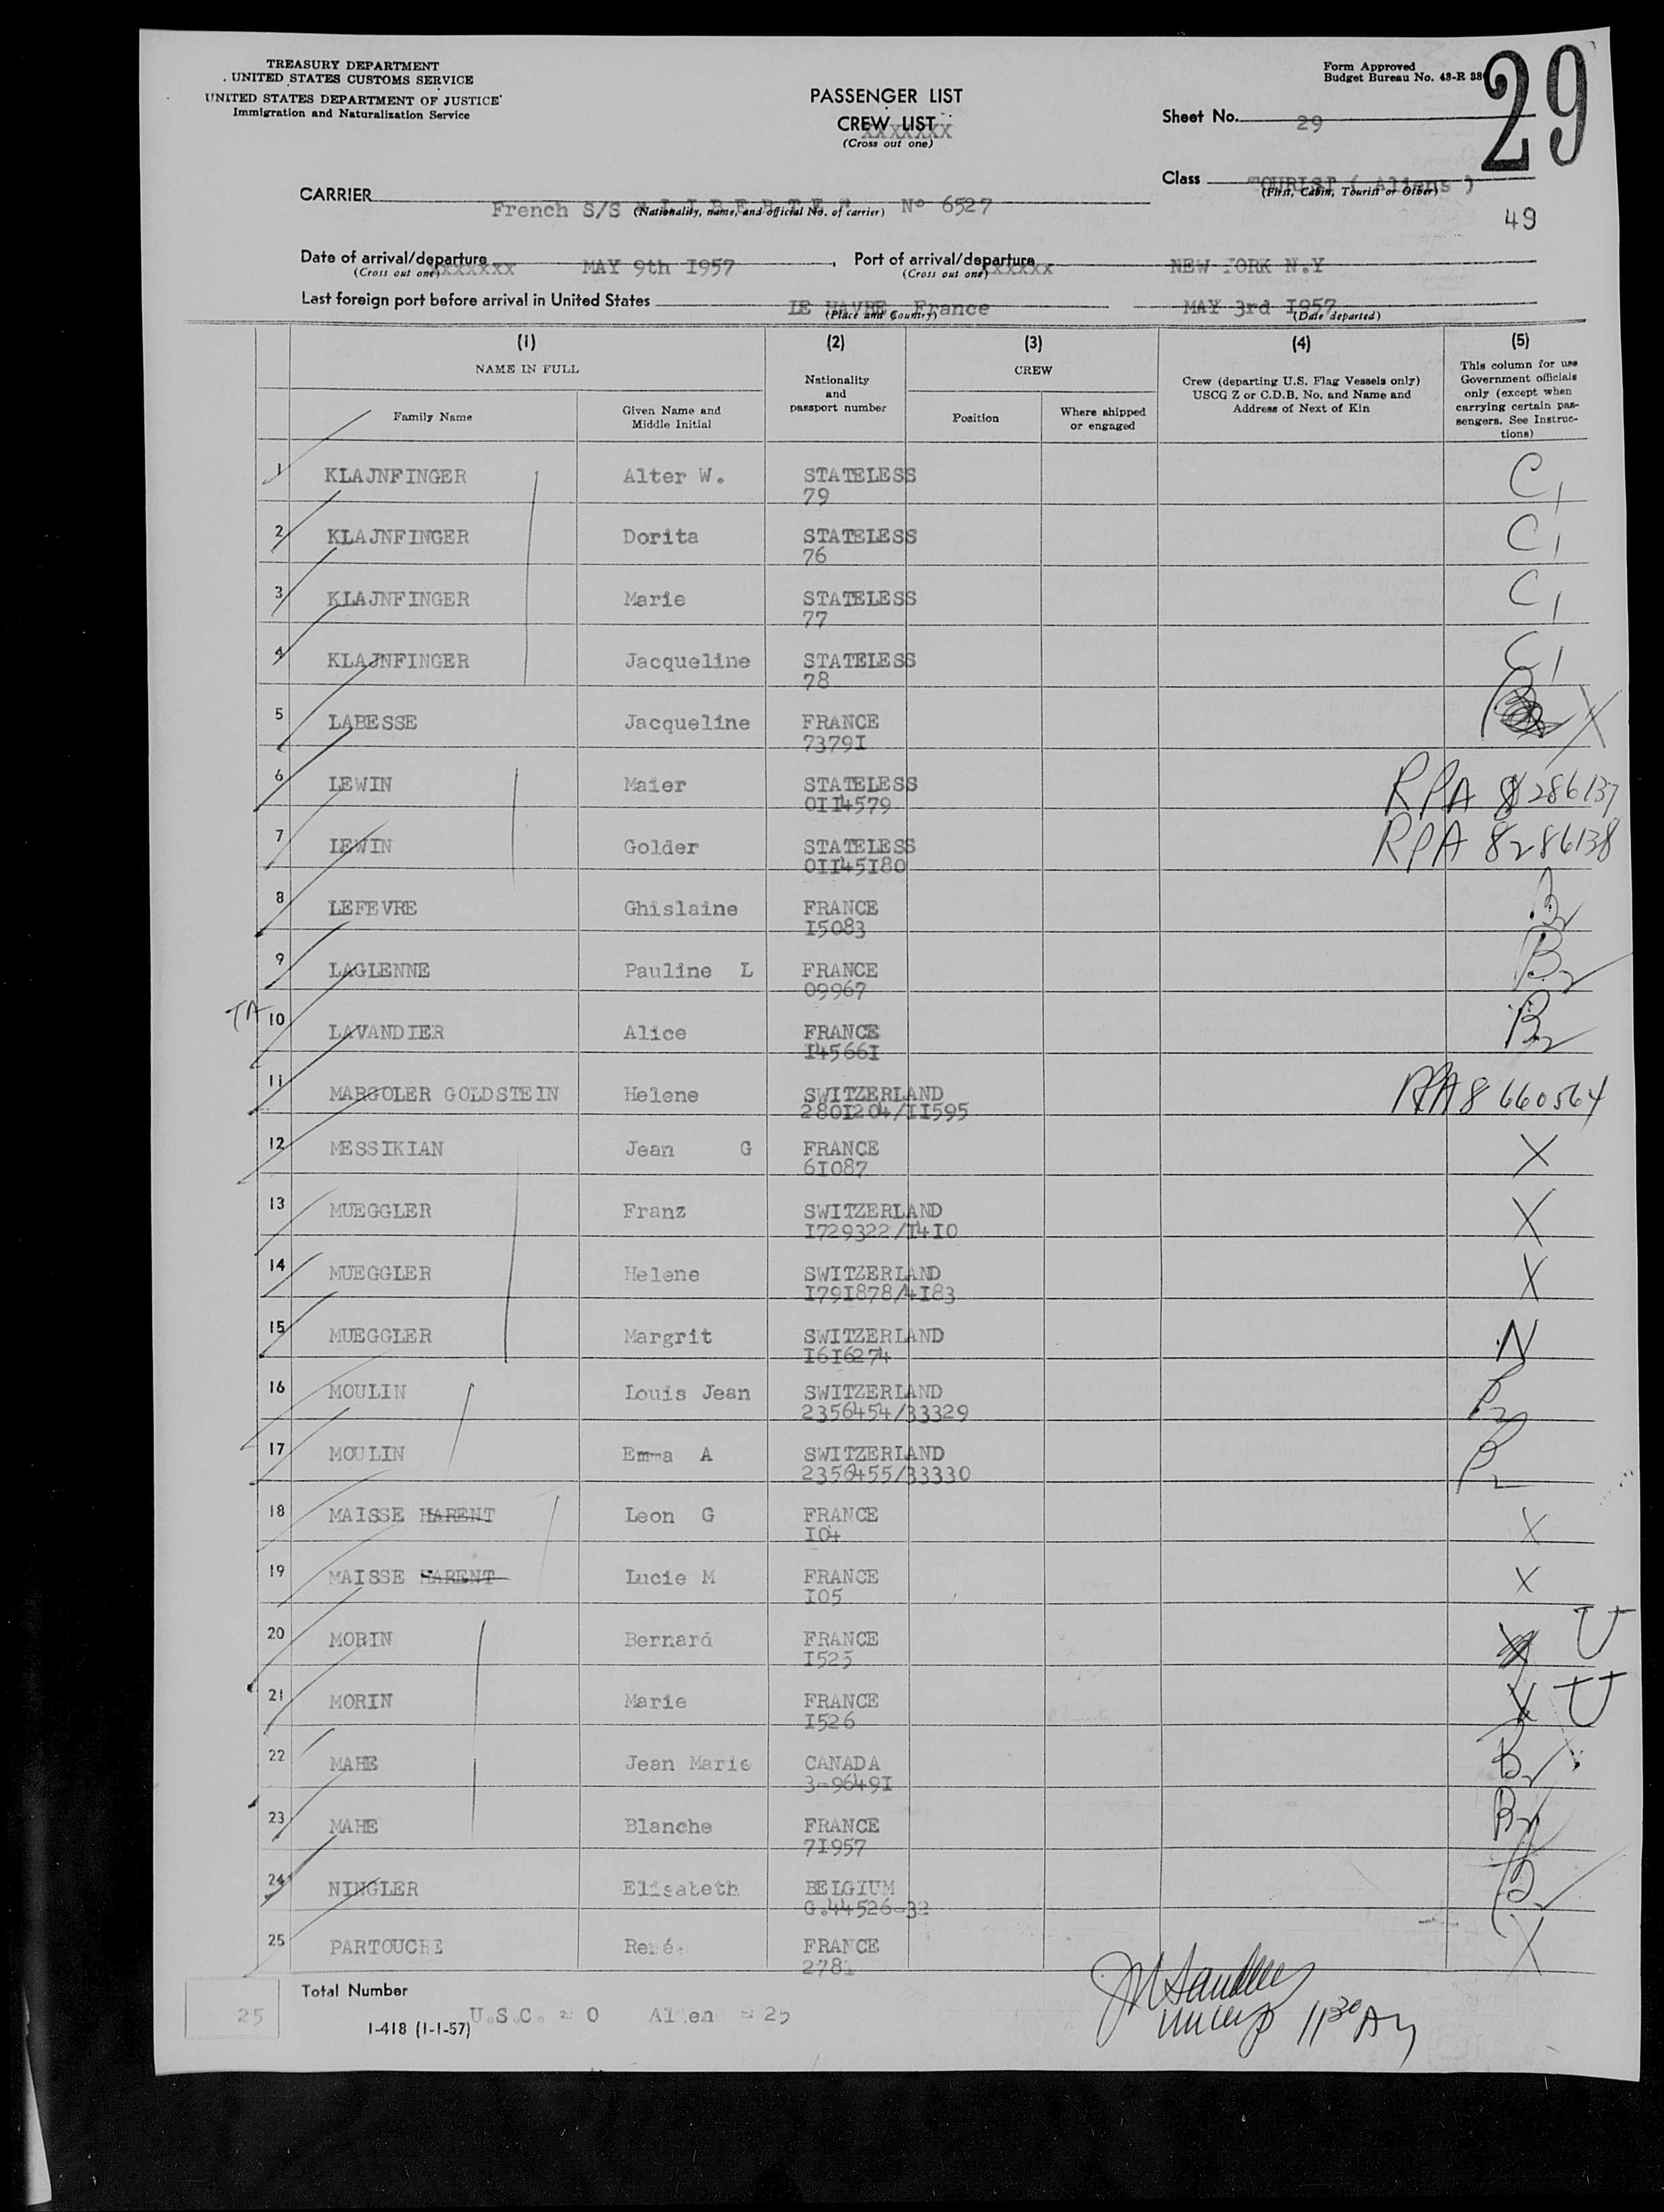 TREASURY DEPARTMENT
UNITED STATES CUSTOMS SERVICE
UNITED STATES DEPARTMENT OF JUSTICE
Immigration and Naturalization Service
PASSENGER LIST
CREW LIST
XXXXXXX
(Cross out one)
Form Approved
Budget Bureau No. 43-R
29
Sheet No. 29
Class TOURIST ( Aliens )
(First, Cabin, Tourist or Other)
49
CARRIER French S/S " L I B E R T E " N° 6527
(Nationality, name, and official No. of carrier)
Date of arrival/departure MAY 9th I957, Port of arrival/departure NEW YORK N.Y
(Cross out one) xxxxxx (Cross out one) xxxxxx
Last foreign port before arrival in United States LE HAVRE, France MAY 3rd I957
(Place and Country) (Date departed)
(1) (2) (3) (4) (5)
NAME IN FULL
Nationality and passport number
CREW
Crew (departing U.S. Flag Vessels only) USCG Z or C.D.B. No. and Name and Address of Next of Kin
This column for use Government officials only (except when carrying certain passengers. See Instructions)
Family Name Given Name and Middle Initial Position Where shipped or engaged
1 KLAJNFINGER Alter W. STATELESS C1
79
2 KLAJNFINGER Dorita STATELESS C1
76
3 KLAJNFINGER Marie STATELESS C1
77
4 KLAJNFINGER Jacqueline STATELESS C1
78
5 LABESSE Jacqueline FRANCE X
7379I
6 LEWIN Maier STATELESS RPA 8286137
0II4579
7 LEWIN Golder STATELESS RPA 8286138
0II45I80
8 LEFEVRE Ghislaine FRANCE B2
I5083
9 LAGLENNE Pauline L FRANCE B2
09967
TA
10 LAVANDIER Alice FRANCE B2
I4566I
11 MARGOLER GOLDSTEIN Helene SWITZERLAND RPA 8 660564
280I204/II595
12 MESSIKIAN Jean G FRANCE X
6I087
13 MUEGGLER Franz SWITZERLAND X
I729322/I4I0
14 MUEGGLER Helene SWITZERLAND X
I79I878/4I83
15 MUEGGLER Margrit SWITZERLAND N
I6I6274
16 MOULIN Louis Jean SWITZERLAND P2
2356454/33329
17 MOULIN Emma A SWITZERLAND P2
2356455/33330
18 MAISSE HARENT Leon G FRANCE X
I04
19 MAISSE HARENT Lucie M FRANCE X
I05
20 MORIN Bernard FRANCE U
I525
21 MORIN Marie FRANCE X U
I526
22 MAHE Jean Marie CANADA B2
3-9649I
23 MAHE Blanche FRANCE B2
7I957
24 NINGLER Elisabeth BELGIUM B2
G.44526-32
25 PARTOUCHE René FRANCE X
278I
Total Number
25
U.S.C. = 0 Alien = 25
I-418 (1-1-57)
11 30 AM